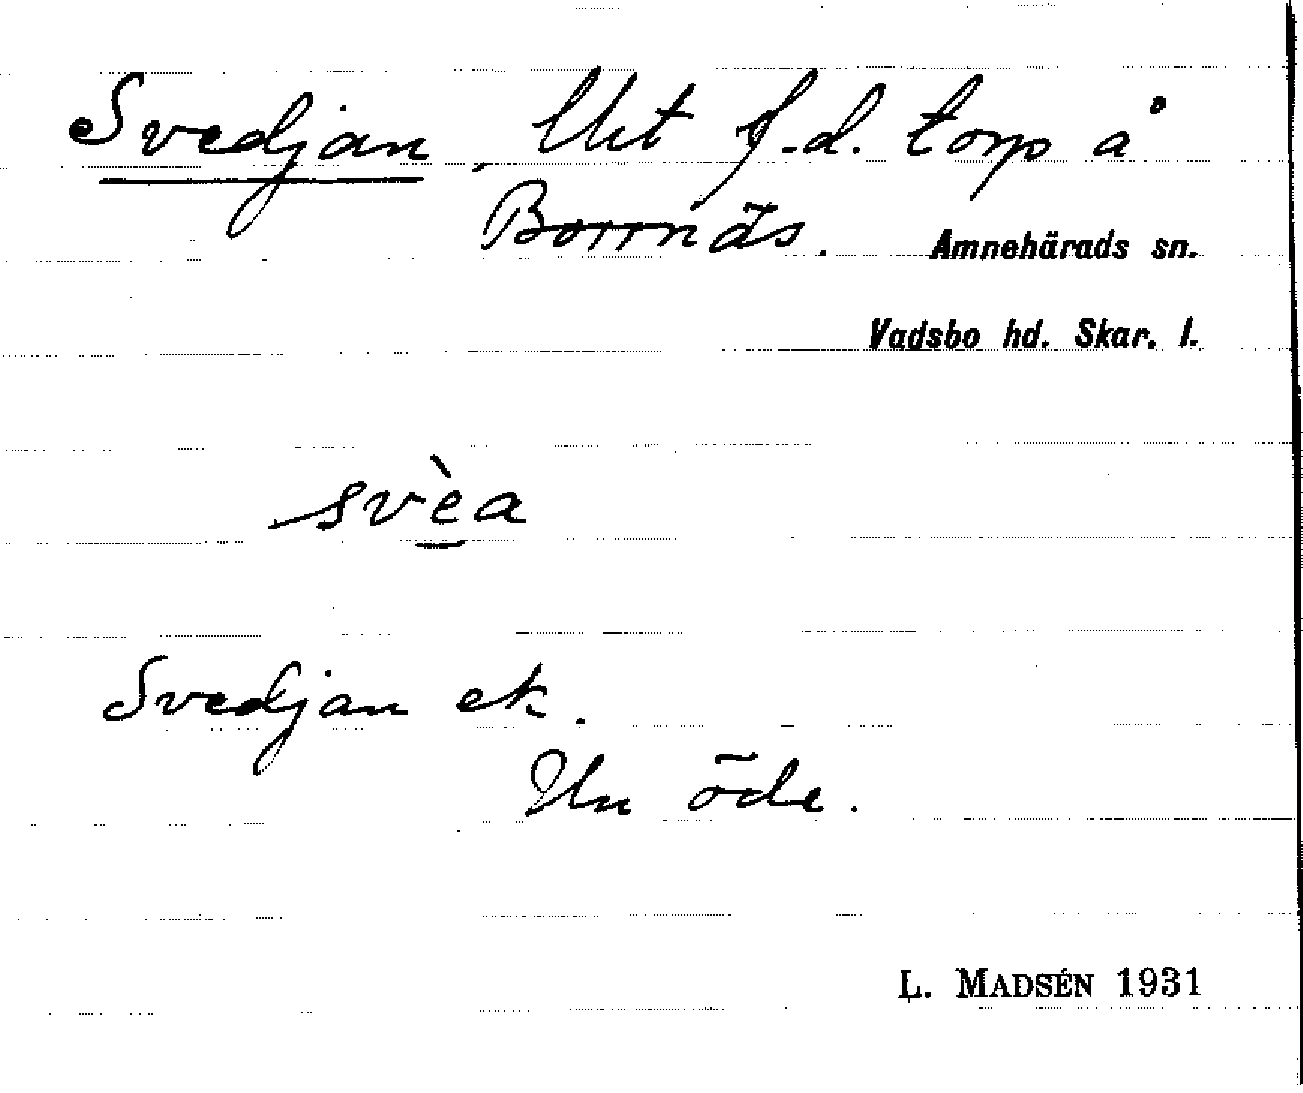 Svedjan, Utt f.d. torp å
Borrnäs.
Amnehärads sn.
Vadsbo hd. Skar. l.
svèa
Svedjan ek.
Nu öde.
L. MADSÉN 1931